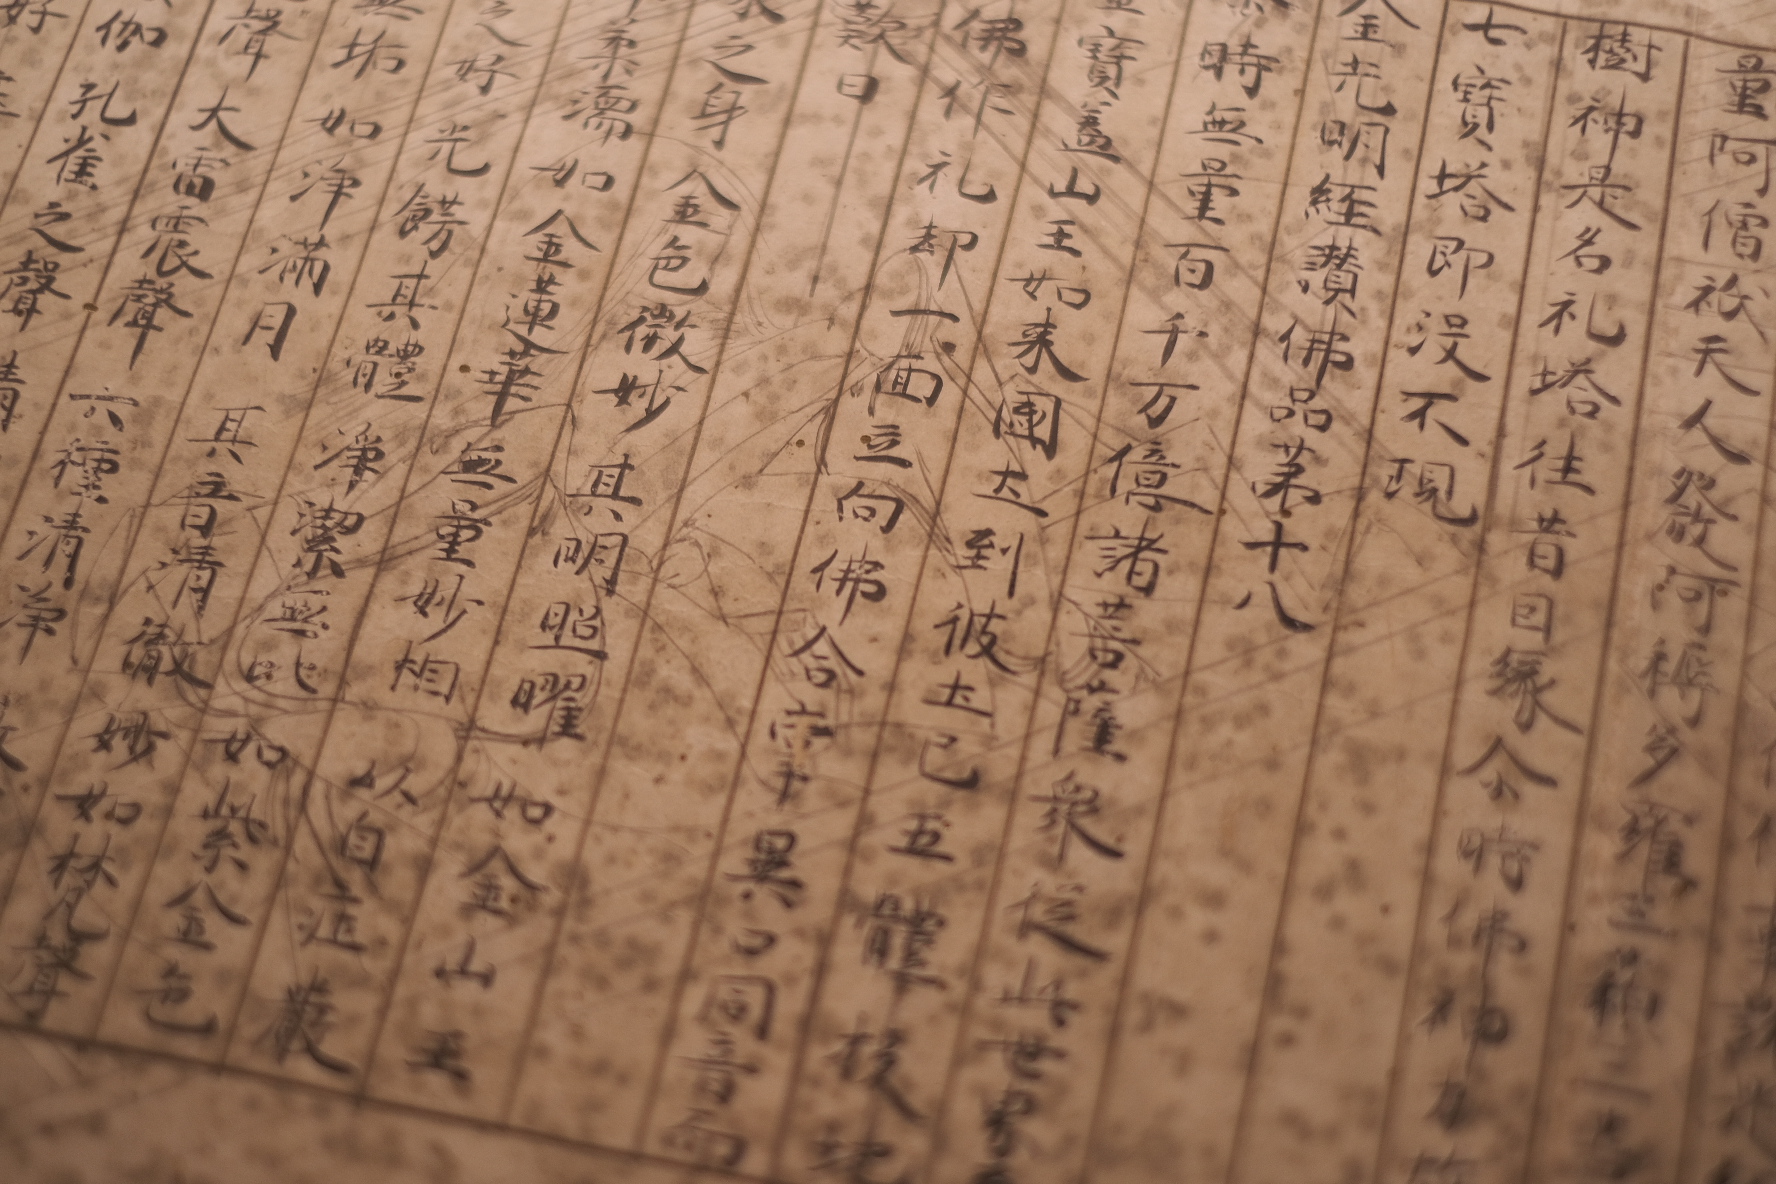 量阿僧祇天人發阿耨多羅三藐三
樹神是名礼塔往昔因縁介時佛神力
七寶塔即没不現
金光明經讃佛品第十八
時無量百千万億諸菩薩衆從此世界
寶蓋山王如来國土到彼土已五體投地
佛作礼却一面立向佛合掌異口同音而
歎曰
之身金色微妙其明照曜如金山王
柔濡如金蓮華無量妙相以自庄嚴
之好光餝其體淨潔無比如紫金色
無垢如淨滿月其音清徹妙如梵聲
聲大雷震聲六種清淨
伽孔雀之聲清
好